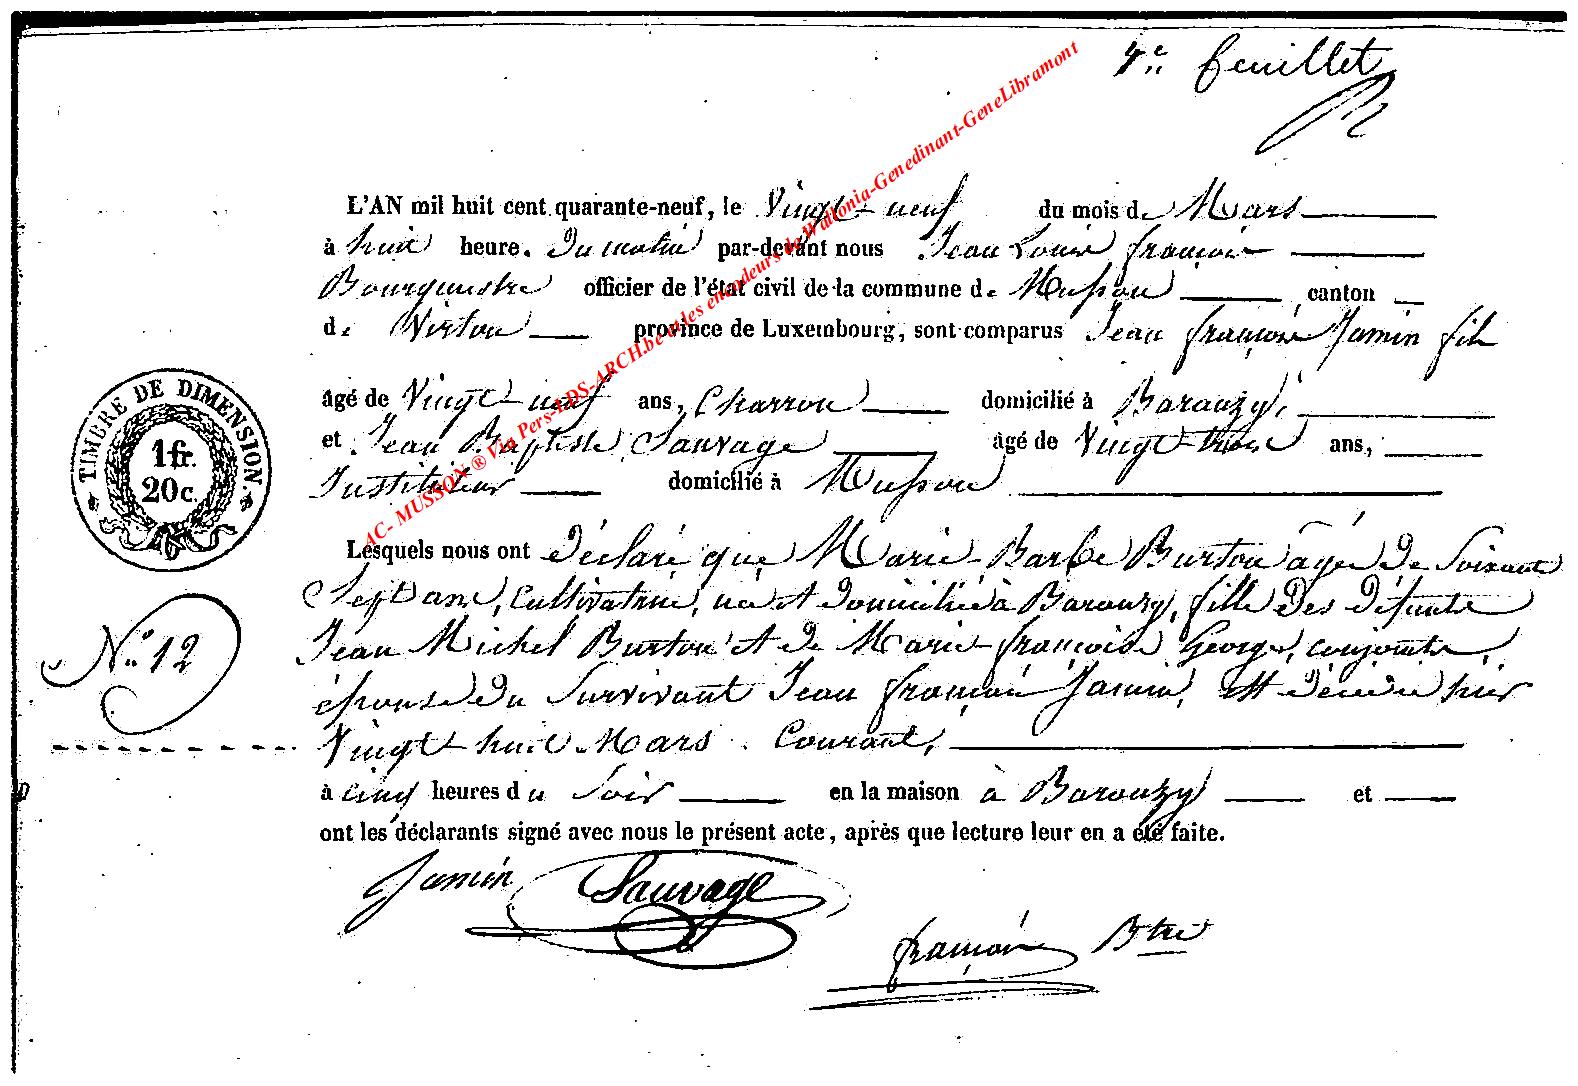 4e feuillet
L'AN mil huit cent quarante-neuf, le Vingt-neuf du mois de Mars
à huit heure. Du matin par-devant nous Jean Louis françois
Bourgmestre officier de l'état civil de la commune de Musson canton
de Virton province de Luxembourg, sont comparus Jean françois Jamin fils
âgé de Vingt-neuf ans, Charron domicilié à Baranzy,
et Jean Baptiste Sauvage âgé de Vingt-trois ans,
Instituteur domicilié à Musson
Lesquels nous ont déclaré que Marie-Barbe Burton agée de Soixante
Sept ans, Cultivatrice, née et domiciliée à Baranzy, fille des défunts
Jean Michel Burton et de Marie-françoise George, conjoints,
épouse du Survivant Jean françois Jamin, est décédée hier
Vingt-huit Mars Courant,
à cinq heures du Soir en la maison à Baranzy et
ont les déclarants signé avec nous le présent acte, après que lecture leur en a été faite.
Jamin Sauvage
françois Btre
TIMBRE DE DIMENSION.
1 fr.
20 c.
No. 12
AC- MUSSON ® Via Pers-LDS-ARCH.be et les encodeurs de Wallonia-Genedinant-GeneLibramont